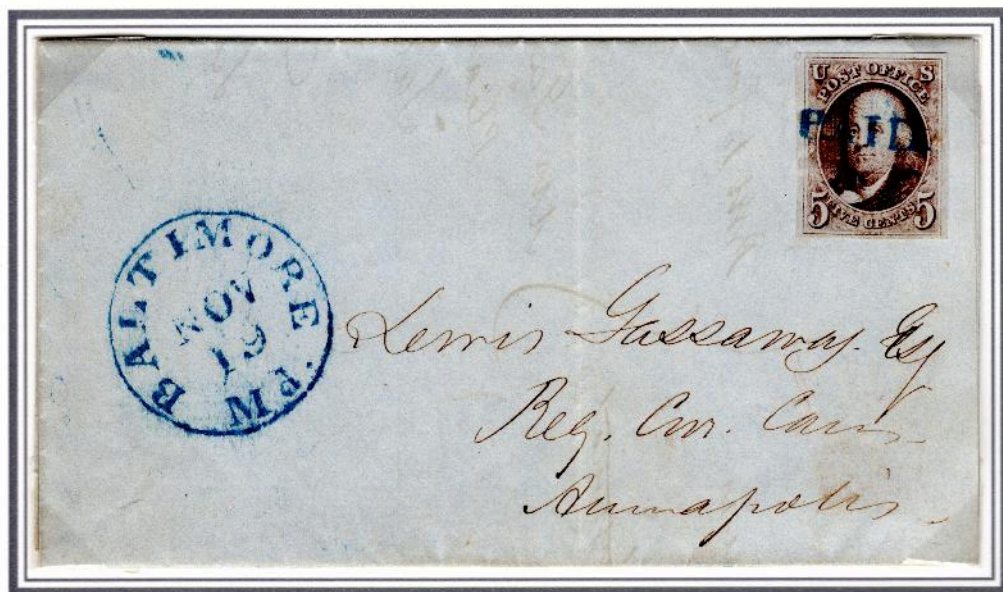 U S
POST OFFICE
PAID
5 FIVE CENTS 5
BALTIMORE Md.
NOV
19
Lewis Gassaway. Esq
Reg. Cur. Canc.
Annapolis